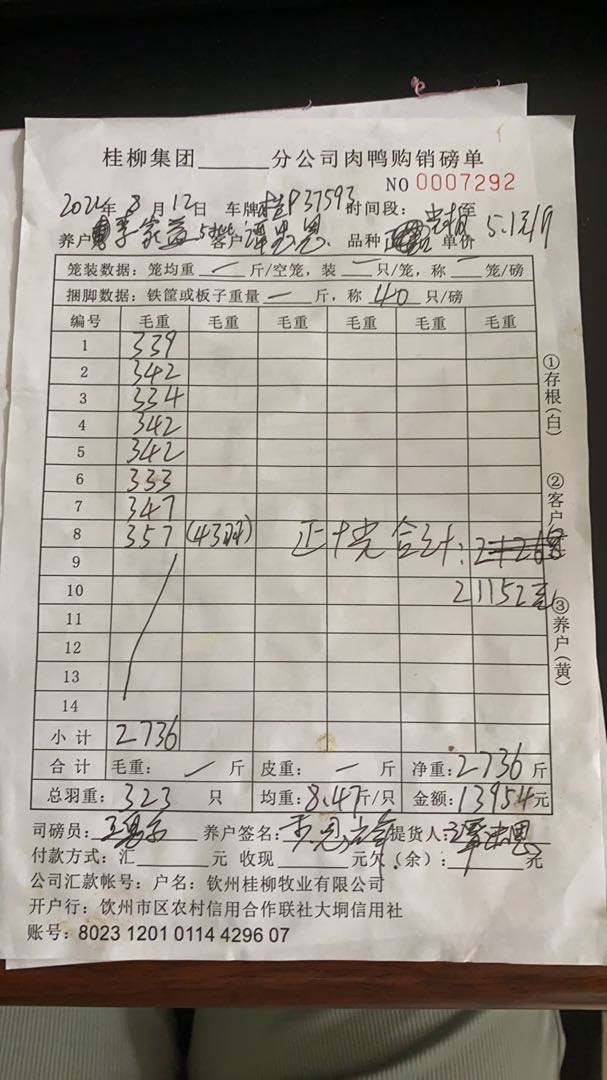 桂柳集团______分公司肉鸭购销磅单
NO 0007292
2021年8月12日 车牌桂P37593 时间段： 至
养户 李家益 客户 谭忠恩 品种 单价 5.1元/斤
笼装数据：笼均重 — 斤/空笼，装 — 只/笼，称 — 笼/磅
捆脚数据：铁筐或板子重量 — 斤，称 40 只/磅
编号 毛重 毛重 毛重 毛重 毛重 毛重
1 339
2 342
3 334
4 342
5 342
6 333
7 347
8 357 (43羽) 合计：
9
10 21152元
11
12
13
14
小计 2736
合计 毛重： — 斤 皮重： — 斤 净重：2736 斤
总羽重：323 只 均重：8.47斤/只 金额：13954元
司磅员： 养户签名： 提货人：
付款方式：汇______元 收现______元欠（余）：______元
公司汇款帐号：户名：钦州桂柳牧业有限公司
开户行：钦州市区农村信用合作联社大垌信用社
账号：8023 1201 0114 4296 07
①存根(白)
②客户
③养户(黄)